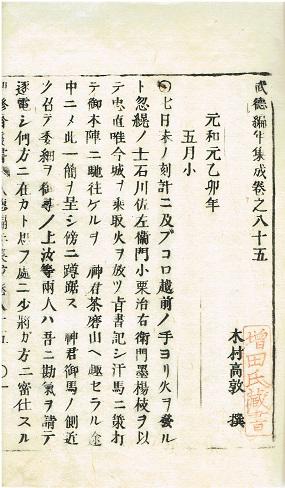 武德編年集成卷之八十五
木村高敦 撰
增田氏藏書
元和元乙卯年
五月小
○七日未ノ刻計ニ及ブコロ越前ノ手ヨリ火ヲ發ル
ト忽緹ノ士石川佐左衞門小栗治右衞門墨楊枝ヲ以
テ忠直唯今城ヲ乘取火ヲ放ツ旨書記シ汗馬ニ策打
テ御本陣ニ馳往ケルヲ 神君茶磨山ヘ趣セラル途
中ニメ此一簡ヲ呈シ傍ニ蹲踞ス 神君御馬ノ側近
ク召テ委細ヲ御尋ノ上汝等兩人ハ吾ニ勘氣ヲ請テ
逐電シ何方ニ在カト思フ處ニ少將ガ方ニ密仕スル